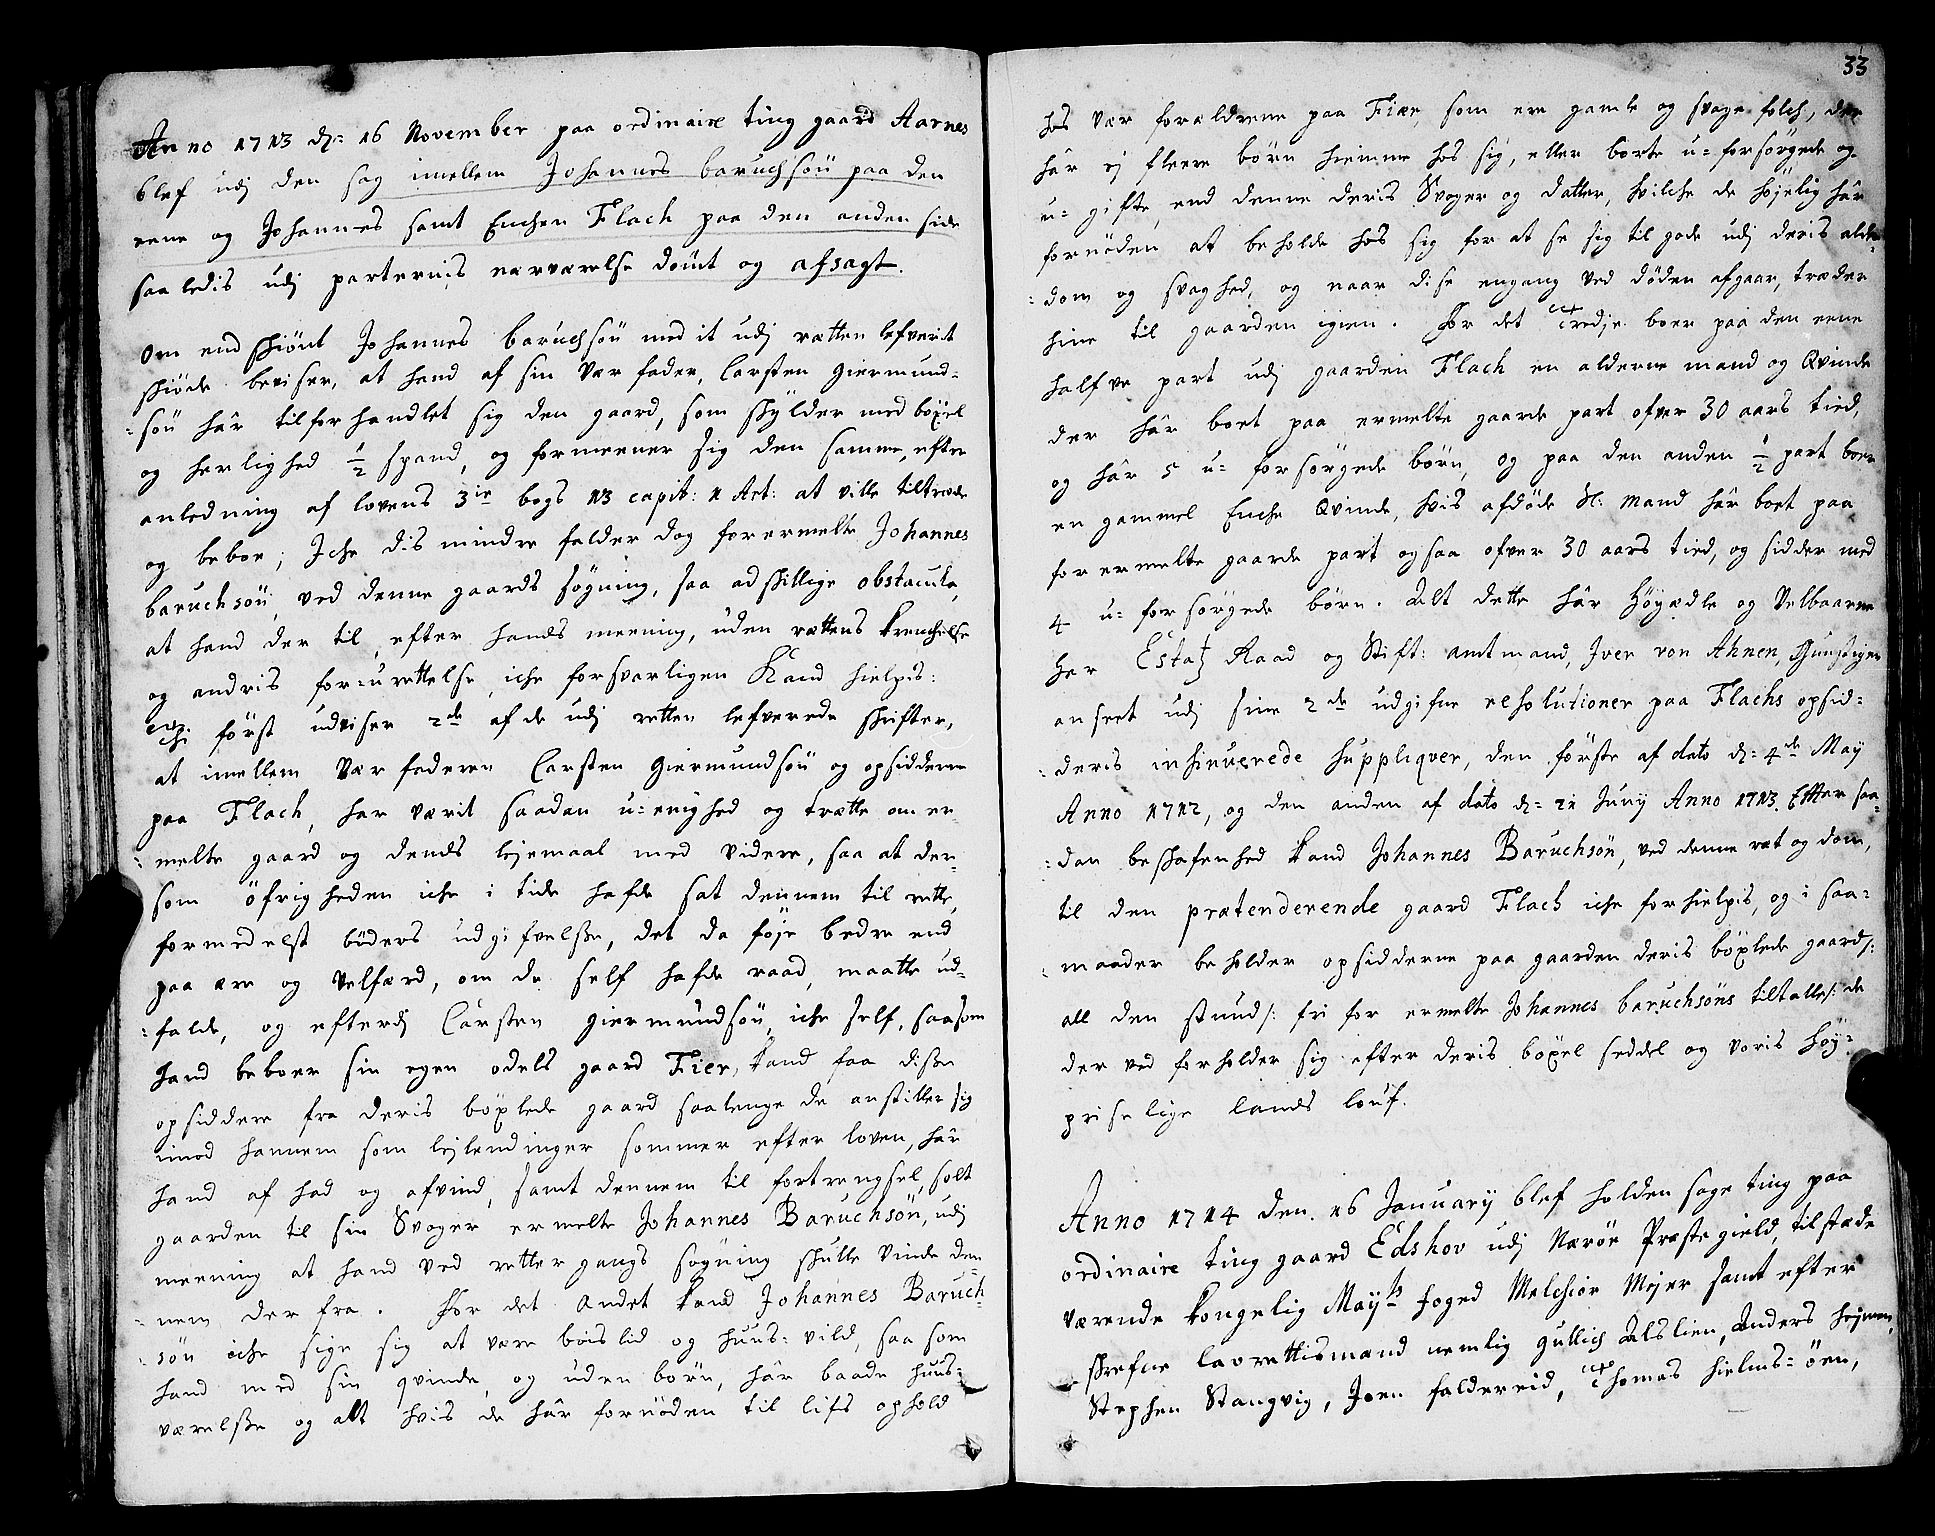 Anno 1713 d: 16 November paa ordinaire ting gaard Aarnes
blef udj den sag imellem Johannes baruchsön paa den
eene og Johannes samt Enchen Flach paa den anden side
saaledis udj parternis nærværelse dömt og afsagt.
Om end skiönt Johannes baruchsön med it udj rætten lefverit
skiöde beviser, at hand af sin Vær fader, Carsten Giermund-
sön här tilforhandlet sig den gaard, som skylder med böxel
og herlighed ½ spand, og formeener sig den samme, efter
anledning af lovens 3ie bogs 13 capit: 1 Art: at ville tiltræde
og beboe; Iche dis mindre falder dog forermelte Johannes
baruchsön, ved denne gaards sögning, saa adskillige obstacula,
at hand der til, efter hands meening, uden rættens krenchelse
og andris for-urettelse, iche forsvarligen Kand hielpis:
Thi först udviser 2de af de udj retten lefverede skrifter,
at imellem Vær faderen Carsten Giermundsön og opsidderne
paa Flach, har værit saadan u-enighed og trætte om er-
melte gaard og dends lejemaal med videre, saa at der-
som öfrigheden iche i tide hafde sat dennem til rette,
formedelst böders udgifvelsse, det da föje bedre end
paa ære og Velfærd, om de self hafde raad, maatte ud-
falde, og efterdj Carsten Giermundsön, iche self, saasom
hand beboer sin egen odels gaard Fier, kand faa disse
opsiddere fra deris böxlede gaard saalenge de anstiller sig
imod hannem som lejlendinger sommer efter loven, här
hand af had og afvind, samt dennem til fortrengsel, solt
gaarden til sin Svoger ermelte Johannes Baruchsön, udj
meening at hand ved retter gangs sögning skulle vinde den-
nem der fra. For det Andet kand Johannes Baruch-
sön iche sige sig at være boislid og huus-vild, saa som
hand med sin qvinde, og uden börn, här baade huus-
værelsse og alt hvis de här fornöden til lifs ophold
33
hos vær forældrene paa Fiær, som ere gamle og svage folch, der
här ej fleere börn hiemme hos sig, eller borte u-forsörgede og
u-gifte, end denne deris Svoger og datter, hvilche de höjelig här
fornöden at beholde hos sig for at se sig til gode udj deris alder-
dom og svaghed, og naar disse engang ved döden afgaar, træder
hine til gaarden igien. For det Tredje boer paa den eene
halfve part udj gaarden Flach en alderne mand og Qvinde
der här boet paa ermelte gaarde part ofver 30 aars tied,
og här 5 u-forsörgede börn, og paa den anden ½ part boer
en gammel Enche Qvinde, hvis afdöde Sl: mand här boet paa
forermelte gaarde part ogsaa ofver 30 aars tied, og sidder med
4 u-forsörgede börn. Alt dette här Höyædle og Velbaarne
Her Estatz Raad og Stift: amtmand, Iver von Ahnen, Gunstigen
anseet udj sine 2de udgifne resolutioner paa Flachs opsid-
deris insinuerede suppliqver, den förste af dato d: 4de May
Anno 1712, og den anden af dato d: 21 Junij Anno 1713. Effter saa-
dan beskafenhed kand Johannes Baruchsön, ved denne ræt og dom,
til den prætenderende gaard Flach iche forhielpis, og i saa-
maader beholder opsidderne paa gaarden deris böxlede gaard /:
all den stund /: fri for ermelte Johannes baruchsöns tiltalle /: de
der ved forholder sig efter deris böxel seddel og voris höy-
priselige lands louf.
Anno 1714 den 16 January blef holden sage ting paa
ordinaire ting gaard Edshov udj Næröe Præstegield, tilstæde
værende kongelig Mayts foged Melchior Mejer samt efter
skrefne lavrettismænd nemlig Gullich Alslien, Anders
Stephen Stangvig, Joen faldereid, Thomas hielms-öen,